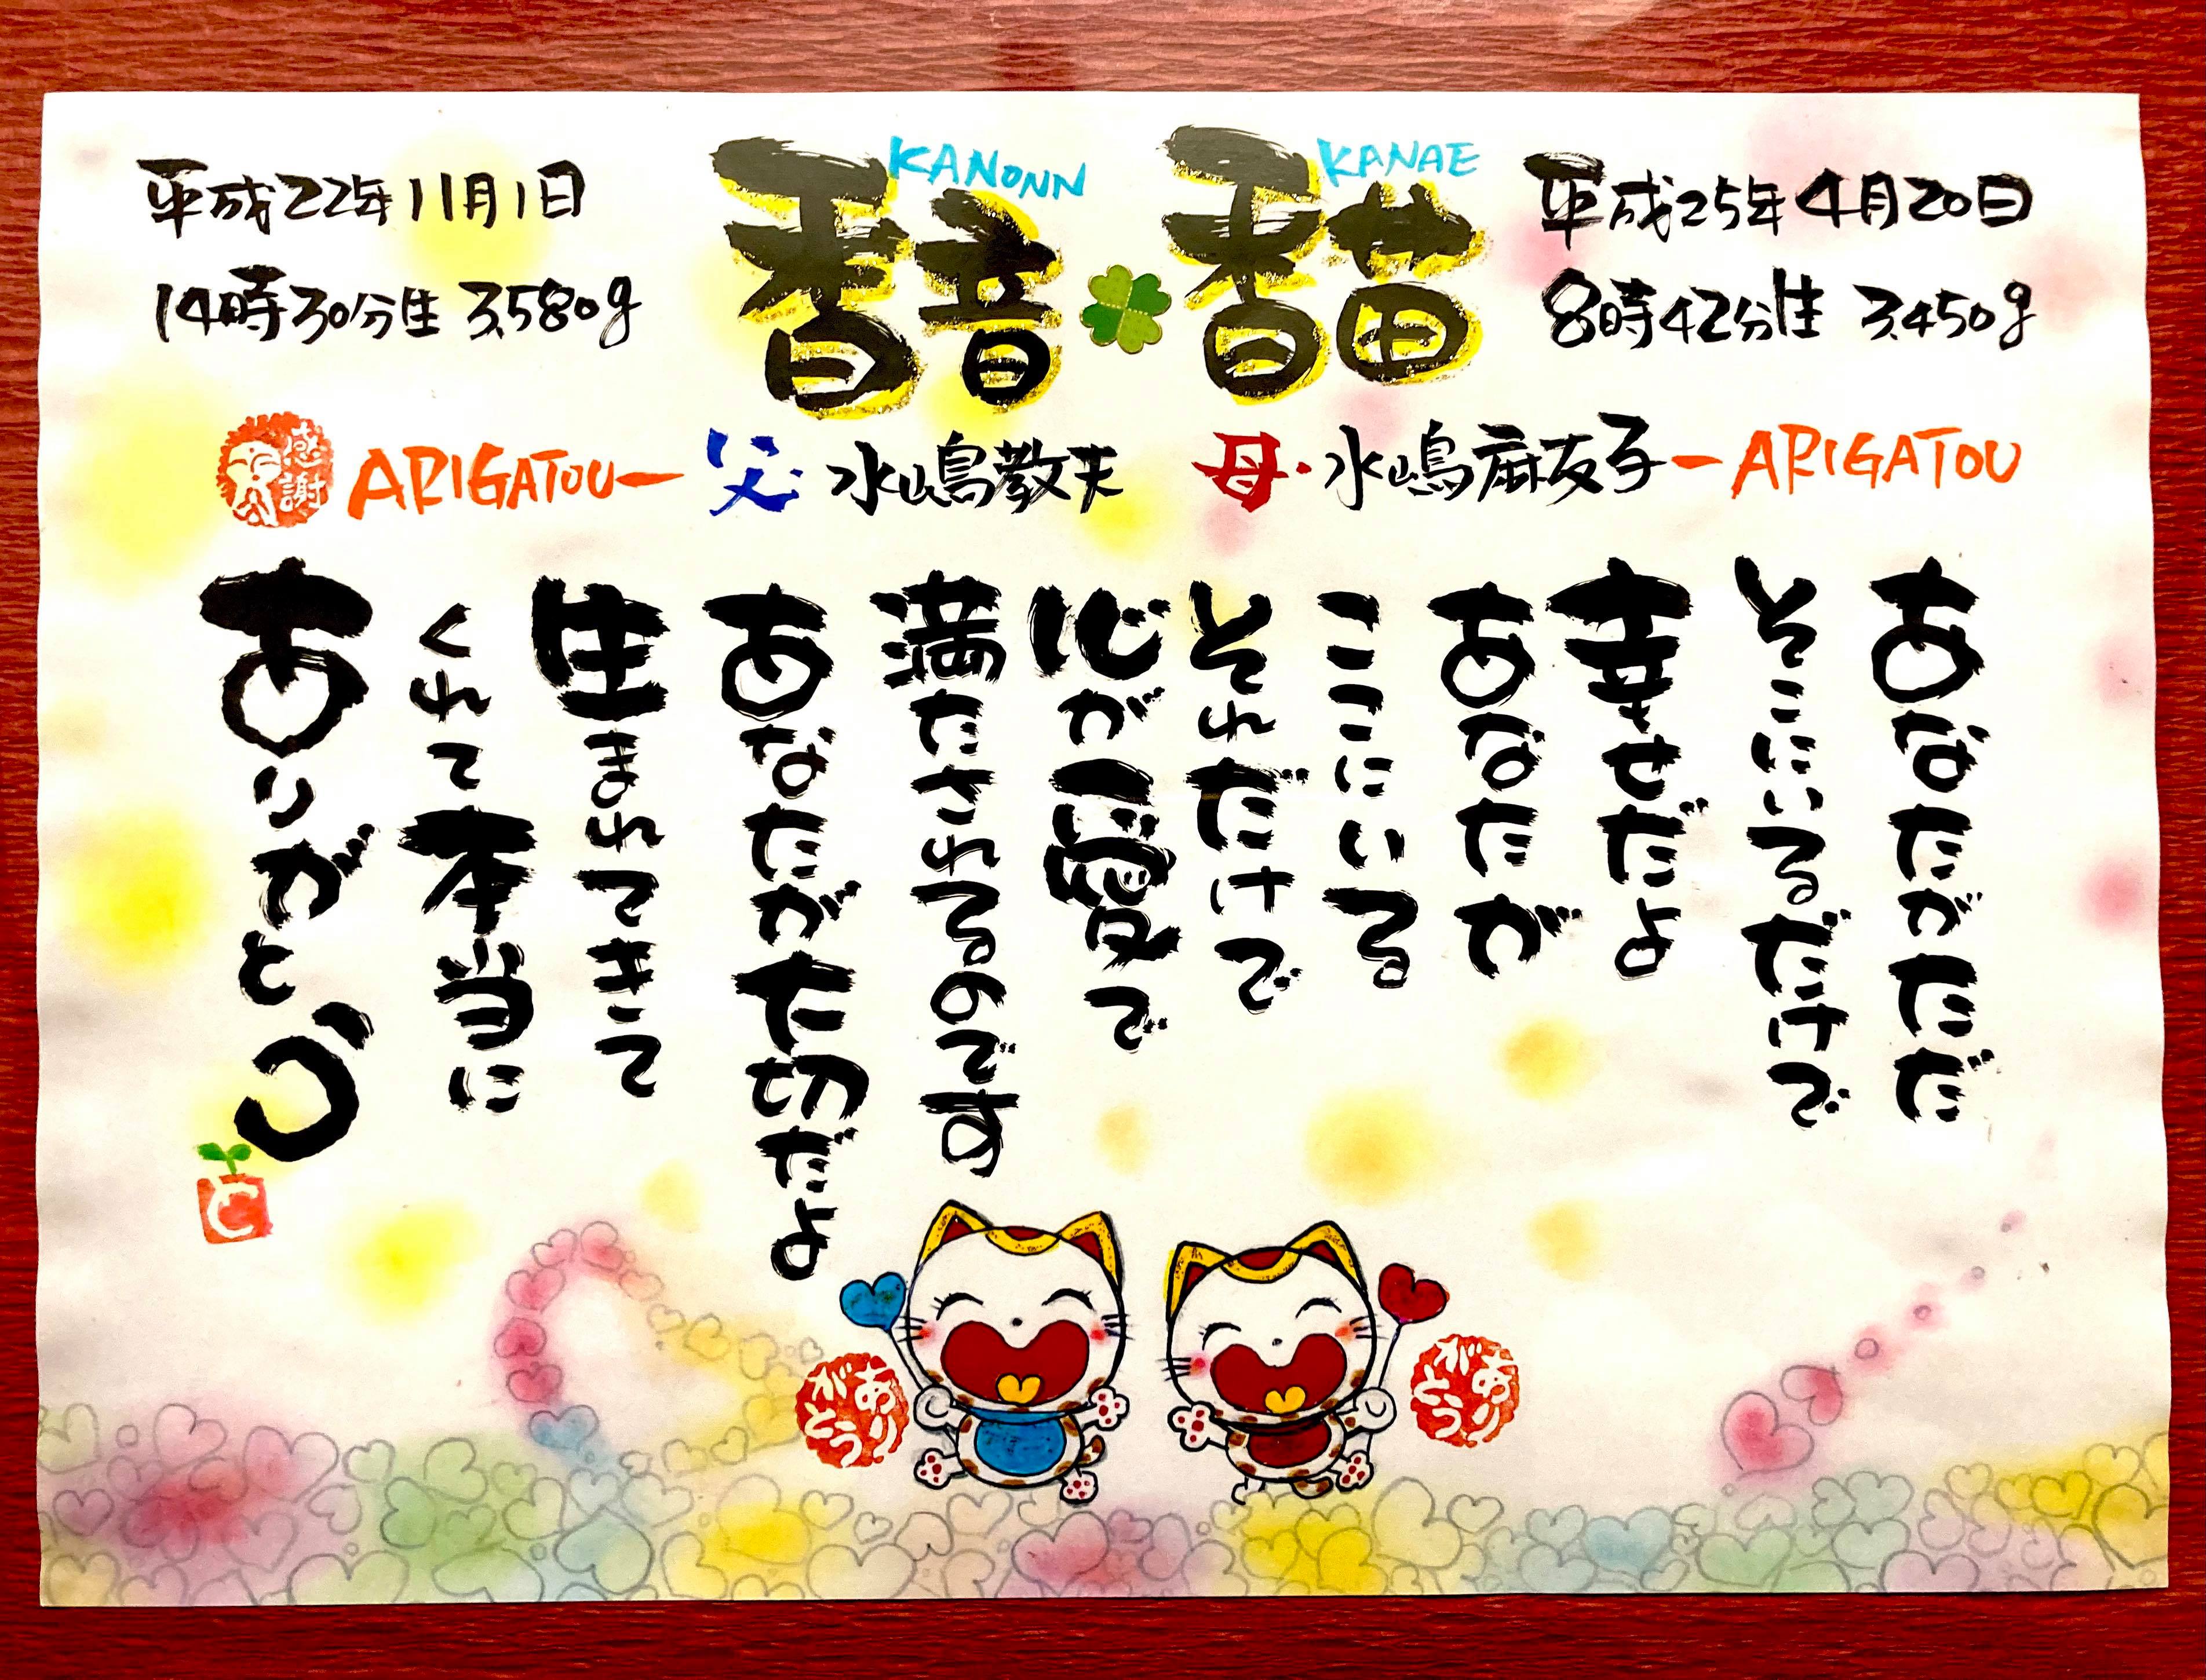 平成22年11月1日
14時30分生 3,580g
KANONN
香音
KANAE
香苗
平成25年4月20日
8時42分生 3,450g
感謝
ARIGATOU
父・水嶋教夫
母・水嶋麻友子
ARIGATOU
あなたがただ
そこにいるだけで
幸せだよ
あなたが
ここにいる
それだけで
心が愛で
満たされるのです
あなたが大切だよ
生まれてきて
くれて本当に
ありがとう
と
ありがとう
ありがとう